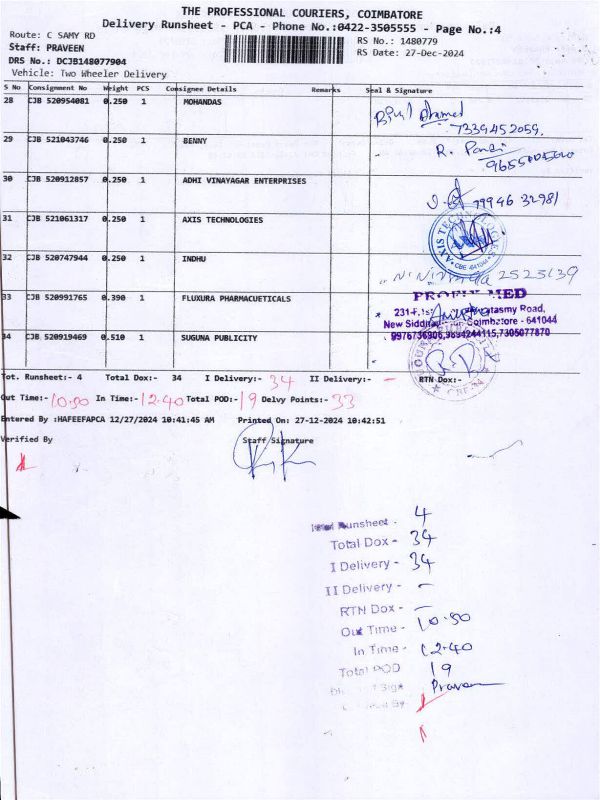 THE PROFESSIONAL COURIERS, COIMBATORE
Delivery Runsheet - PCA - Phone No.:0422-3505555 - Page No.:4
Route: C SAMY RD
RS No.: 1480779
Staff: PRAVEEN
RS Date: 27-Dec-2024
DRS No.: DCJB148077904
Vehicle: Two Wheeler Delivery
S No Consignment No Weight PCS Consignee Details Remarks Seal & Signature
28 CJB 520954081 0.250 1 MOHANDAS
Ahamed
7339452059.
29 CJB 521043746 0.250 1 BENNY
R. Pandi
30 CJB 520912857 0.250 1 ADHI VINAYAGAR ENTERPRISES
79946 32981
31 CJB 521061317 0.250 1 AXIS TECHNOLOGIES
AXIS TECHNOLOGIES
32 CJB 520747944 0.250 1 INDHU
2525139
33 CJB 520991765 0.390 1 FLUXURA PHARMACUETICALS
MED
Road,
New Coimbatore - 641044
34 CJB 520919469 0.510 1 SUGUNA PUBLICITY
9976736906,9894244115,7305077870
Tot. Runsheet:- 4 Total Dox:- 34 I Delivery:- 34 II Delivery:- – RTN Dox:-
Out Time:- 10.50 In Time:- 12.40 Total POD:- 19 Delvy Points:- 33
Entered By :HAFEEFAPCA 12/27/2024 10:41:45 AM Printed On: 27-12-2024 10:42:51
Verified By Staff Signature
Runsheet - 4
Total Dox - 34
I Delivery - 34
II Delivery - –
RTN Dox - –
Out Time - 10.50
In Time - 12.40
Total POD 19
Sign Praveen
By